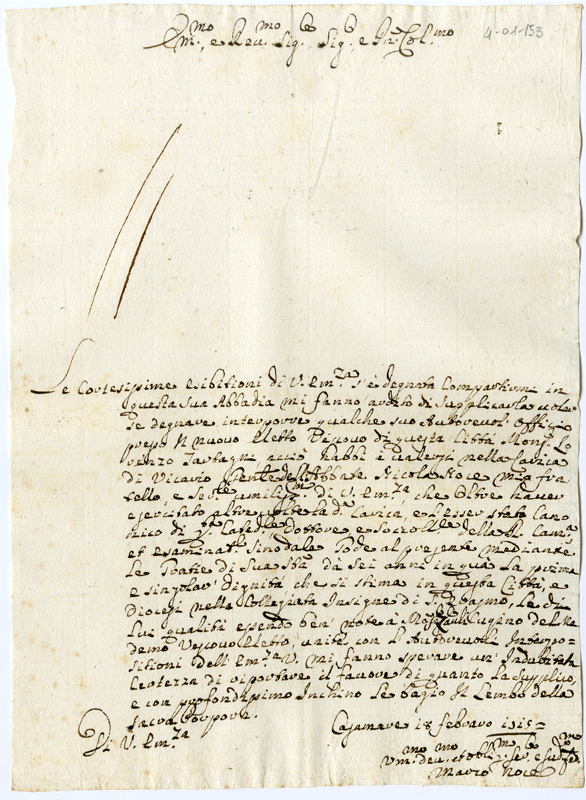 Em.mo, e Rev.mo Sig.re Sig.re e P.rone Col.mo
4-01-153
Le Cortesissime esibitioni di V. Em.za s'è degnata Compartirmi in
questa sua Abbadia mi fanno ardito di supplicarla voler
se degnare interporre qualche suo Autorevol' Offitio
presso Il nuovo Eletto Vescovo di questa Città Mons.r Lo
renzo Tartagni acciò habbi à valersi nella Carica
di Vicario Gen.le dell'Abbate Nicola Noce mio fra
tello, e Ser.re humiliss.mo di V. Em.za che oltre haver
esercitato altre volte d.a Carica, e l'esser stato Cano
nico di q.ta Catedle Dottore, e della
et esaminat.r Sinodale Gode al presente mediante
Le Gratie di Sua Stà da sei anni in quà La prima
e singolar' dignità che si stima in questa Città, e
Diocesi nella Collegiata Insigne di S. Erasmo, Le di
Lui qualità essendo ben' note à Cugino del Me
demo Vescovo Eletto, unite con l'Autorevoli Interpo
sitioni dell'Em.za V. mi fanno sperare un' Indubitata
Certezza di riportare il favore di quanto La supplico,
e con profondissimo Inchino Le bagio Il Lembo della
sacra Porpora.
Di V. Em.za
Castamare 18 febraro 1715=
Um.mo dev. et obl.mo ser.re
Mauro Noce